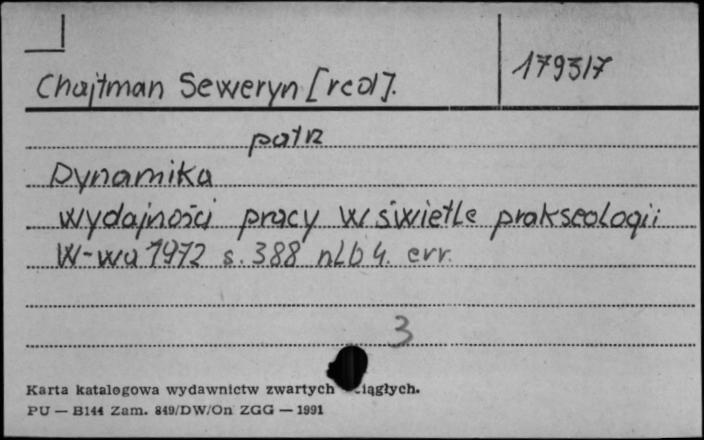 Chajtman Seweryn [red].
179317
patrz
Dynamika
wydajności pracy w świetle prakseologii
W-wa 1972 s. 388 nlb 4. err.
3
Karta katalogowa wydawnictw zwartych ciągłych.
PU — B144 Zam. 849/DW/On ZGG — 1991